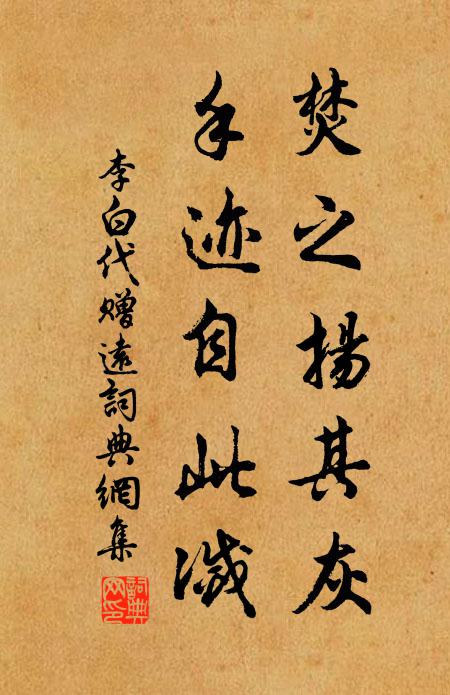 焚之揚其灰
手迹自此滅
李白代贈遠詞典網集
詞典
网印